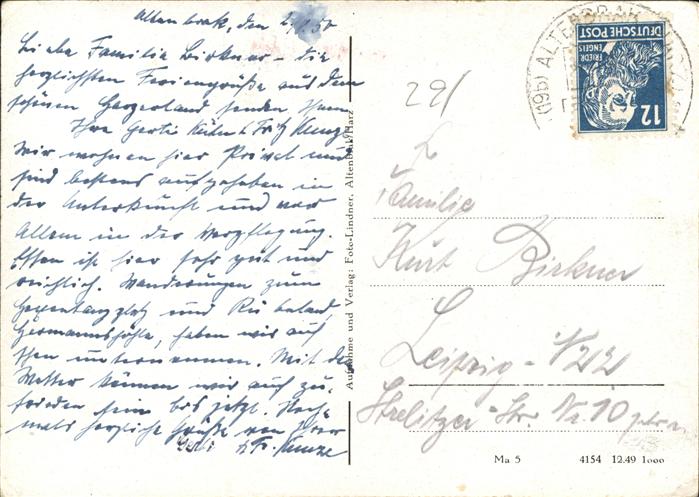 Altenbrak, den
Liebe Familie Birkner - die
herzlichsten Feriengrüße aus dem
schönen Harzerland senden Ihnen
Ihre Gerti Kühn & Fritz Kunze
Wir wohnen hier Privat und
sind bestens aufgehoben in
der Unterkunft und vor
Allem in der Verpflegung.
Essen ist hier sehr gut und
reichlich. Wanderungen zum
Hexentanzplatz und Rübeland,
Hermannshöhle, haben wir auch
schon unternommen. Mit dem
Wetter können wir auch zu-
frieden sein bis jetzt. Noch-
mals herzliche Grüße von Ihrer
Gerti & Fr. Kunze
Aufnahme und Verlag: Foto-Lindner, Altenbrak/Harz
29/
(19b) ALTENBRAK
DEUTSCHE POST
FRIEDR. ENGELS
12
Familie
Kurt Birkner
Leipzig - N22
Strelitzer-Str. Nr. 10
Ma 5 4154 12.49 1000